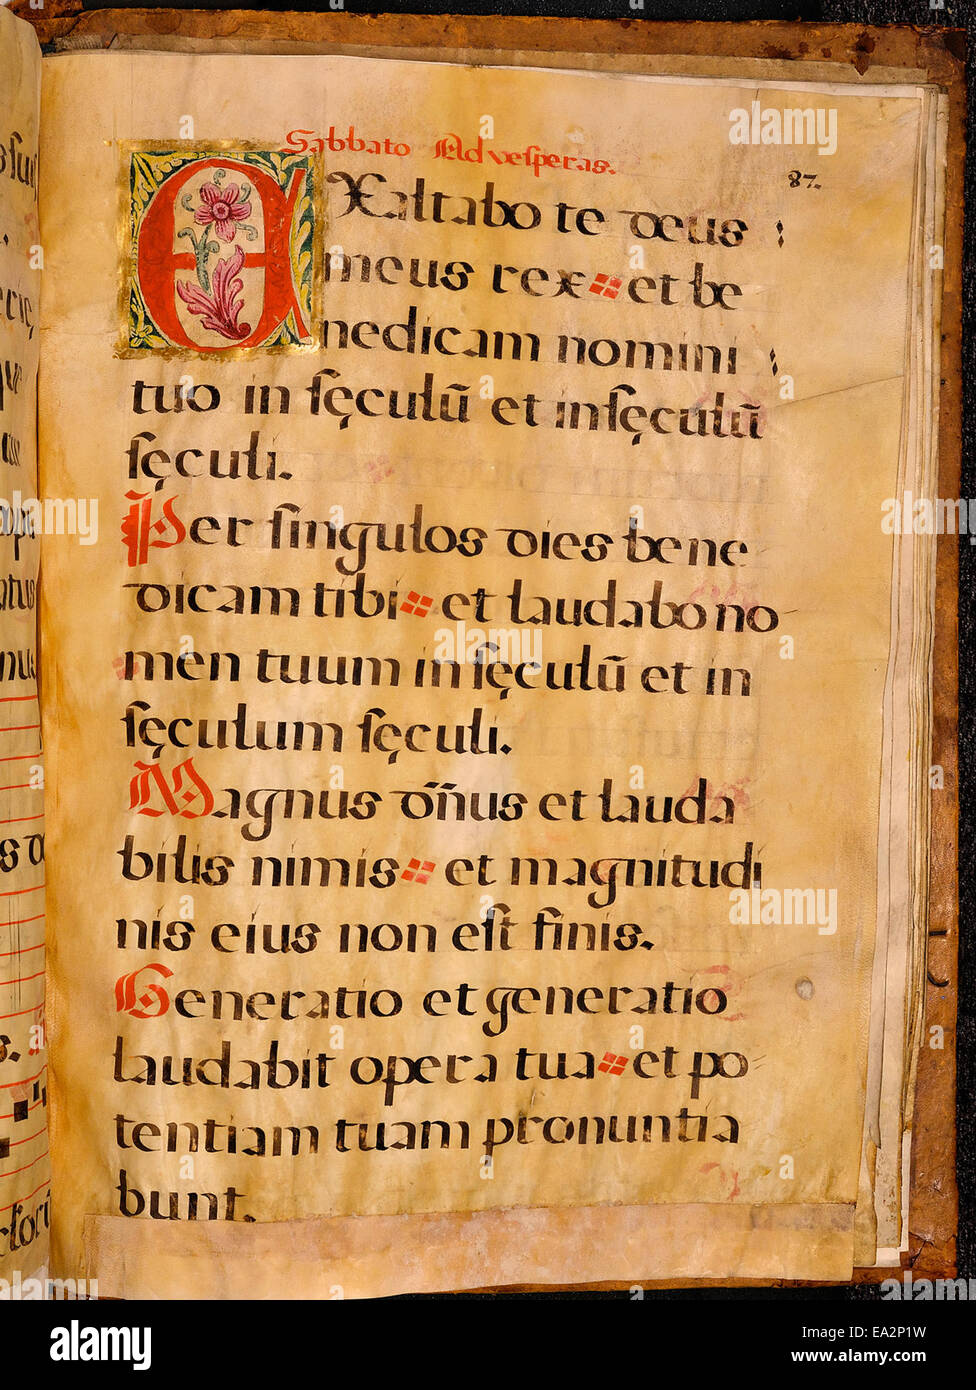 Sabbato Ad vesperas.
87.
EXaltabo te deus
meus rex et be
nedicam nomini
tuo in sęculũ et in sęculũ
sęculi.
Per singulos dies bene
dicam tibi et laudabo no
men tuum in sęculũ et in
sęculum sęculi.
Magnus dñus et lauda
bilis nimis et magnitudi
nis eius non est finis.
Generatio et generatio
laudabit opera tua et po
tentiam tuam pronuntia
bunt.
alamy
Image ID: EA2P1W
www.alamy.com